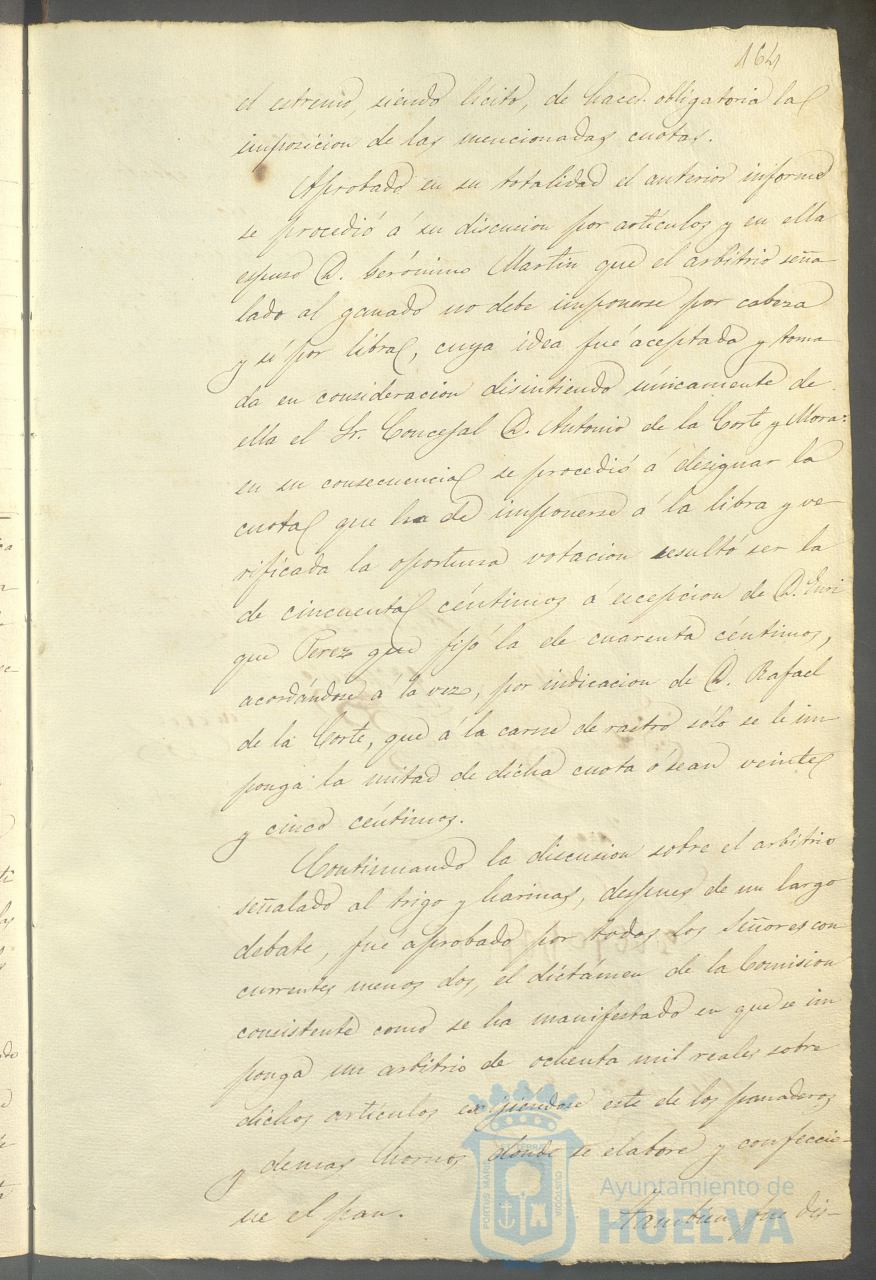 164
el estremo, siendo lícito, de hacer obligatoria la
imposicion de las mencionadas cuotas.
Aprobado en su totalidad el anterior informe
se procedió á su discusion por artículos y en ella
espuso D. Gerónimo Martin que el arbitrio seña-
lado al ganado no debe imponerse por cabeza
y sí por libra, cuya idea fué aceptada y toma-
da en consideracion disintiendo únicamente de
ella el Sr. Concejal D. Antonio de la Corte y Mora:
en su consecuencia se procedió á designar la
cuota que ha de imponerse á la libra y ve-
rificada la oportuna votacion resultó ser la
de cincuenta céntimos á escepcion de D. Enri
que Perez que fijó la de cuarenta céntimos,
acordándose á la vez, por indicacion de D. Rafael
de la Corte, que á la carne de rastro sólo se le im-
ponga la mitad de dicha cuota ó sean veinte
y cinco céntimos.
Continuando la discusion sobre el arbitrio
señalado al trigo y harinas, despues de un largo
debate, fué aprobado por todos los Señores con
currentes menos dos, el dictámen de la Comision
consistente como se ha manifestado en que se im
ponga un arbitrio de ochenta mil reales sobre
dichos artículos exijiéndose este de los panaderos
y demas hornos donde se elabore y confeccio-
ne el pan.
Tambien fue dis-
PORTUS MARIS
ET TERRE
CUSTODIA
Ayuntamiento de
HUELVA